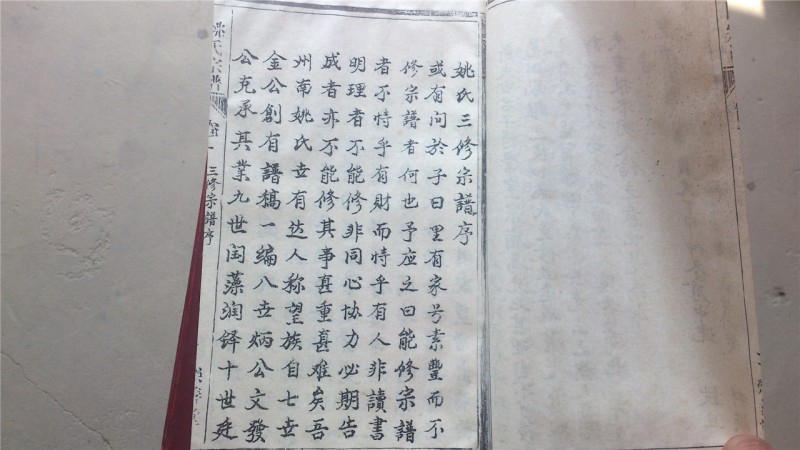 姚氏三修宗譜序
或有问於予曰里有家号素豐而不
修宗譜者何也予应之曰能修宗譜
者不恃乎有財而恃乎有人非讀書
明理者不能修非同心協力必期告
成者亦不能修其事甚重甚难矣吾
州南姚氏世有达人称望族自七世
金公創有譜稿一編八世炳公文發
公克承其業九世闰藻润鐸十世廷
姚氏宗譜
卷一
三修宗譜序